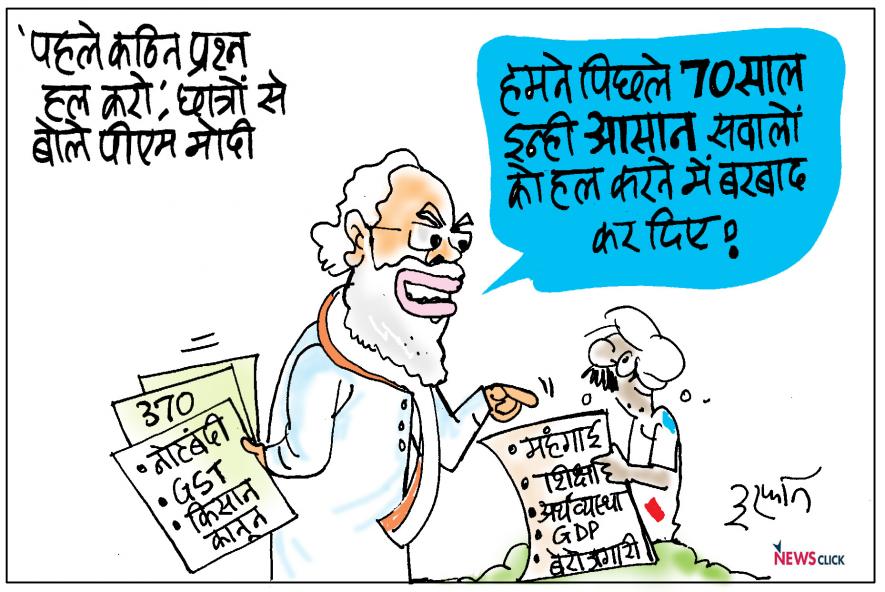 'पहले कठिन प्रश्न
हल करो', छात्रों से
बोले पीएम मोदी
हमने पिछले 70 साल
इन्ही आसान सवालों
को हल करने में बरबाद
कर दिए!
370
• नोटबंदी
• GST
• किसान
कानून
• महंगाई
• शिक्षा
• अर्थव्यस्था
• GDP
• बेरोजगारी
इरफान
NEWSCLICK